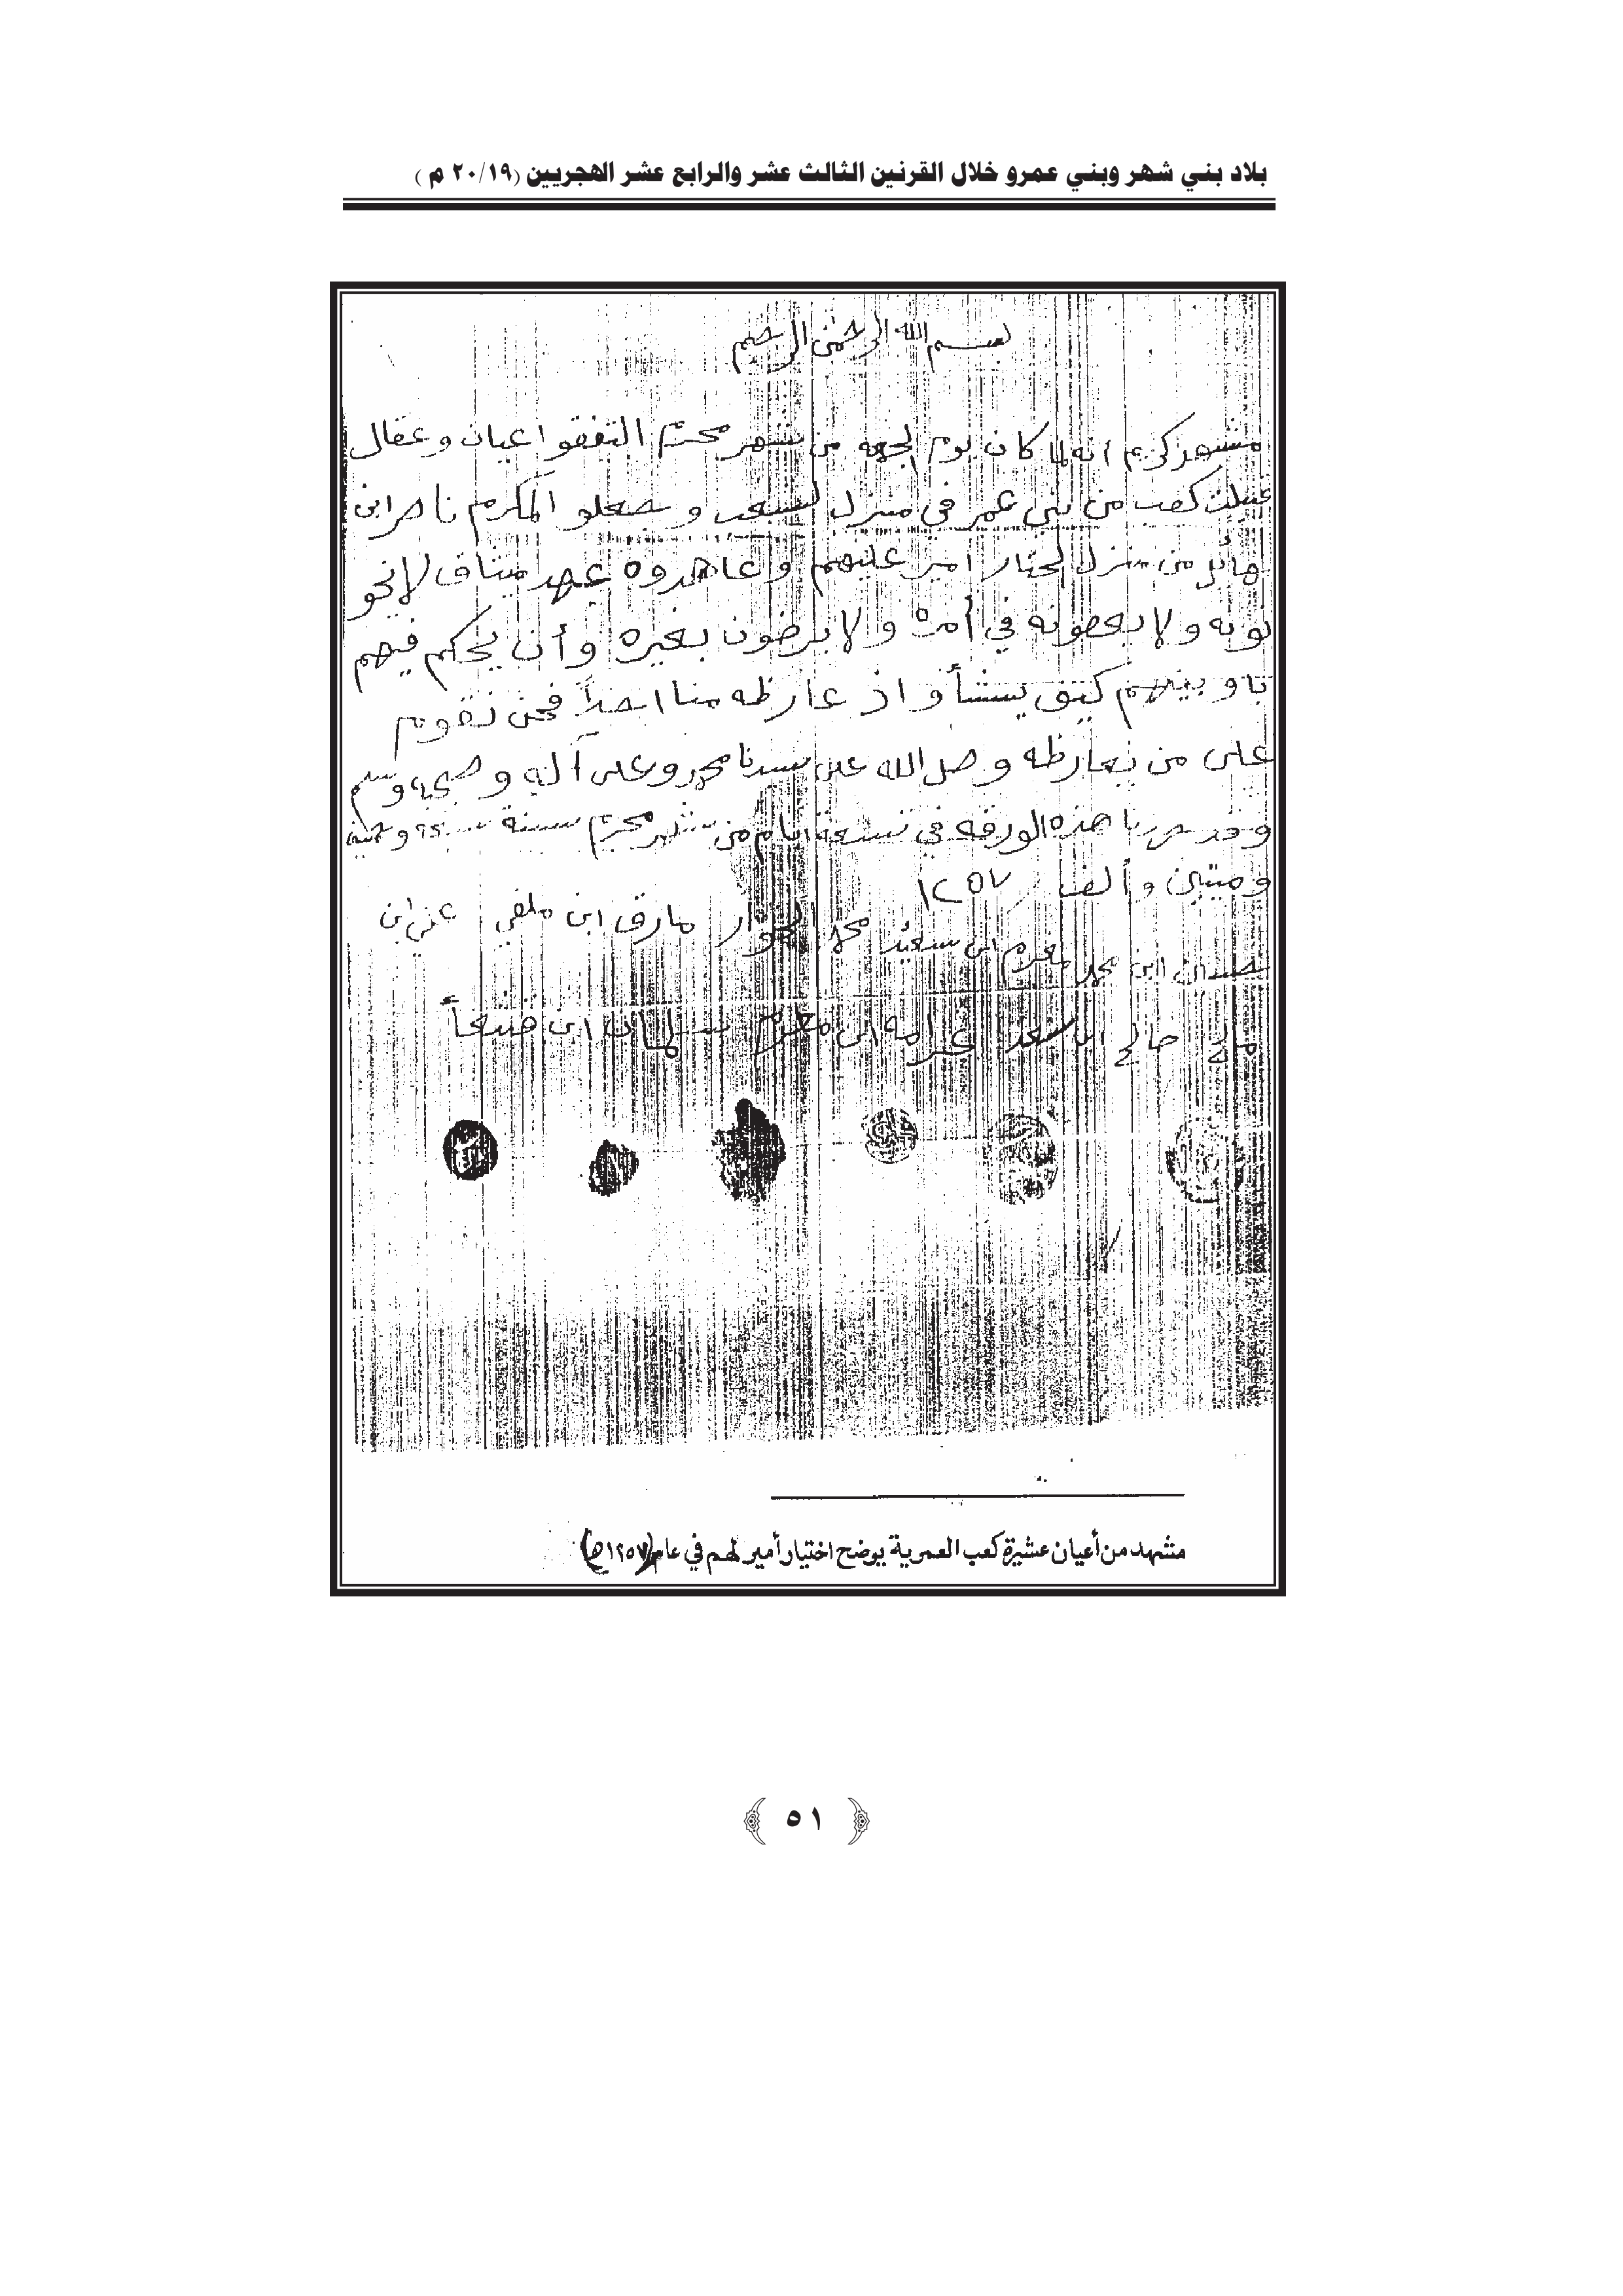 بلاد بني شهر وبني عمرو خلال القرنين الثالث عشر والرابع عشر الهجريين (٢٠/١٩ م )
بسم الله الرحمن الرحيم
مشهد كريم أنه لما كان يوم الجمعه من شهر محرم التفقو اعيان وعقال
كعب من بني عمر في منزل لشعب وجعلو المكرم ناصر ابن
هائل من منزل لحتار امير عليهم وعاهدوه عهد ميثاق لا نخو
نونه ولا يعصونه في أمره ولا يرضون بغيره وأن يحكم فيهم
وبينهم كيف يشأ واذ عارظه منا احداً فحن نقوم
على من يعارظه وصل الله على سيدنا محمد وعلى آله وصحبه وسلم
وقد حررنا هذه الورقه في تسعة ايام من شهر محرم سنة
وميتين وألف ١٢٥٧
ابن محمد ابن سعيد محمد مارق ابن ملفي ابن
صالح ابن ابن ابن
مشهد من أعيان عشيرة كعب العمرية يوضح اختيار أمير لهم في عام (١٢٥٧هـ)
٥١